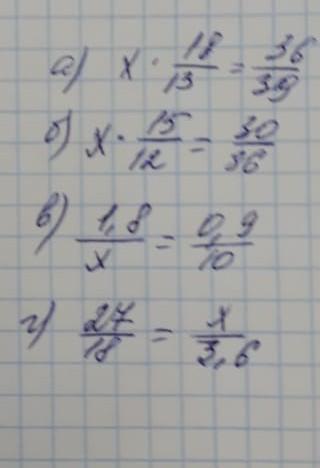 а) x · 18/13 = 36/39
б) x · 15/12 = 30/36
в) 1,8/x = 0,9/10
г) 27/18 = x/3,6